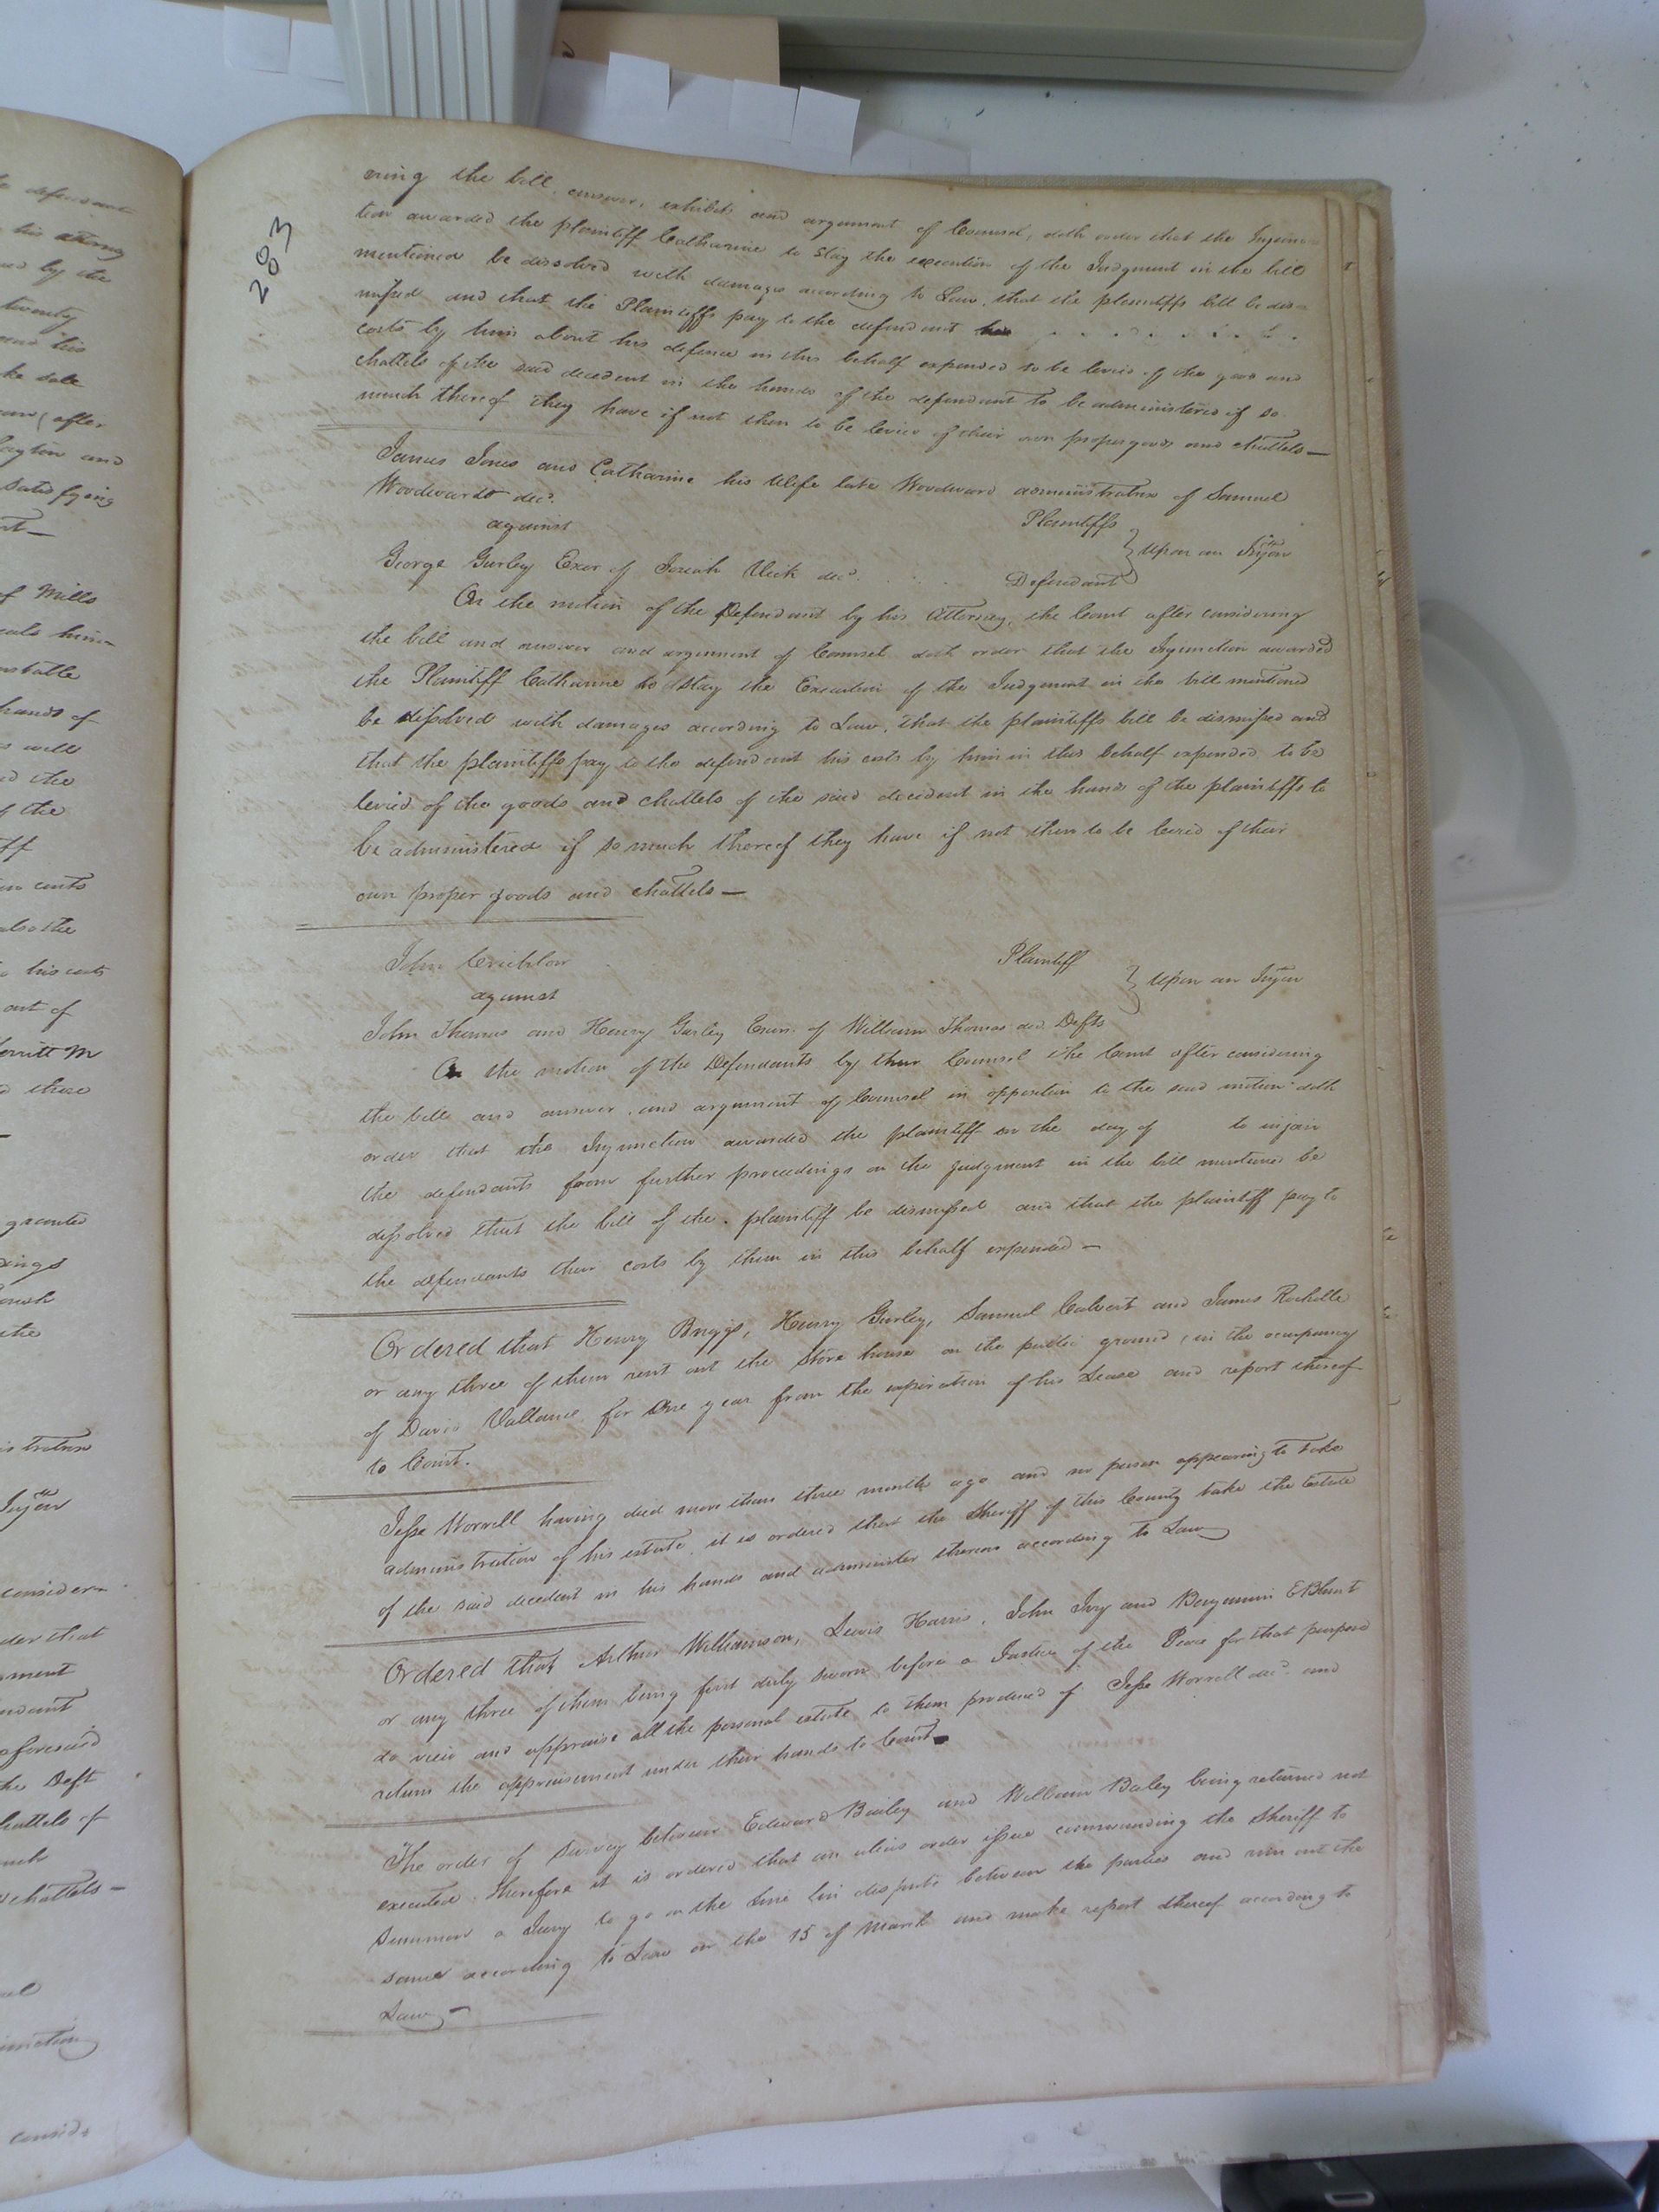 283
ering the bill, answer, exhibits and argument of Counsel, doth order that the Injunc
tion awarded the plaintiff Catharine to Stay the execution of the Judgment in the bill
mentioned be dissolved with damages according to Law, that the plaintiffs bill be dis=
missed and that the Plaintiffs pay to the defendant his
costs by him about his defence in this behalf expended to be levied of the goods and
chattels of the said decedent in the hands of the defendant to be administered if so
much thereof they have if not then to be levied of their own proper goods and chattels—
James Jones and Catharine his Wife late Woodward administratrix of Samuel
Woodward decd.
Plaintiffs
against
} Upon an Injon
George Gurley Exor of Josiah Vick decd. Defendant
On the motion of the Defendant by his Attorney, the Court after considering
the bill and answer and argument of Counsel doth order that the Injunction awarded
the Plaintiff Catharine to Stay the Execution of the Judgment in the bill mentioned
be dissolved with damages according to Law, that the plaintiffs bill be dismissed and
that the plaintiffs pay to the defendant his costs by him in this behalf expended to be
levied of the goods and chattels of the said decedent in the hands of the plaintiffs to
be administered if so much thereof they have if not then to be levied of their
own proper goods and chattels—
John Crichlow Plaintiff
against
} Upon an Injon
John Thomas and Henry Gurley Exors. of William Thomas decd. Defts
On the motion of the Defendants by their Counsel the Court after considering
the bill and answer, and argument of Counsel in opposition to the said motion doth
order that the Injunction awarded the plaintiff on the day of to injoin
the defendants from further proceedings on the judgment in the bill mentioned be
dissolved that the bill of the plaintiff be dismissed and that the plaintiff pay to
the defendants their costs by them in this behalf expended—
Ordered that Henry Briggs, Henry Gurley, Samuel Calvert and James Rochelle
or any three of them rent out the Store house on the public ground (in the occupancy
of David Vallance for One year from the expiration of his Lease and report thereof
to Court.
Jesse Worrell having died more than three months ago and no person appearing to take
administration of his estate, it is ordered that the Sheriff of this County take the Estate
of the said decedent in his hands and administer thereon according to Law
Ordered that Arthur Williamson, Lewis Harris, John Ivy and Benjamin E Blunt
or any three of them being first duly sworn before a Justice of the Peace for that purpose
do view and appraise all the personal estate to them produced of Jesse Worrell decd. and
return the appraisement under their hands to Court
The order of Survey between Edward Bailey and William Bailey being returned not
executed, therefore it is ordered that an alias order issue commanding the Sheriff to
Summon a Jury to go on the Line (in dispute between the parties and run out the
same according to Law on the 15 of March and make report thereof according to
Law—